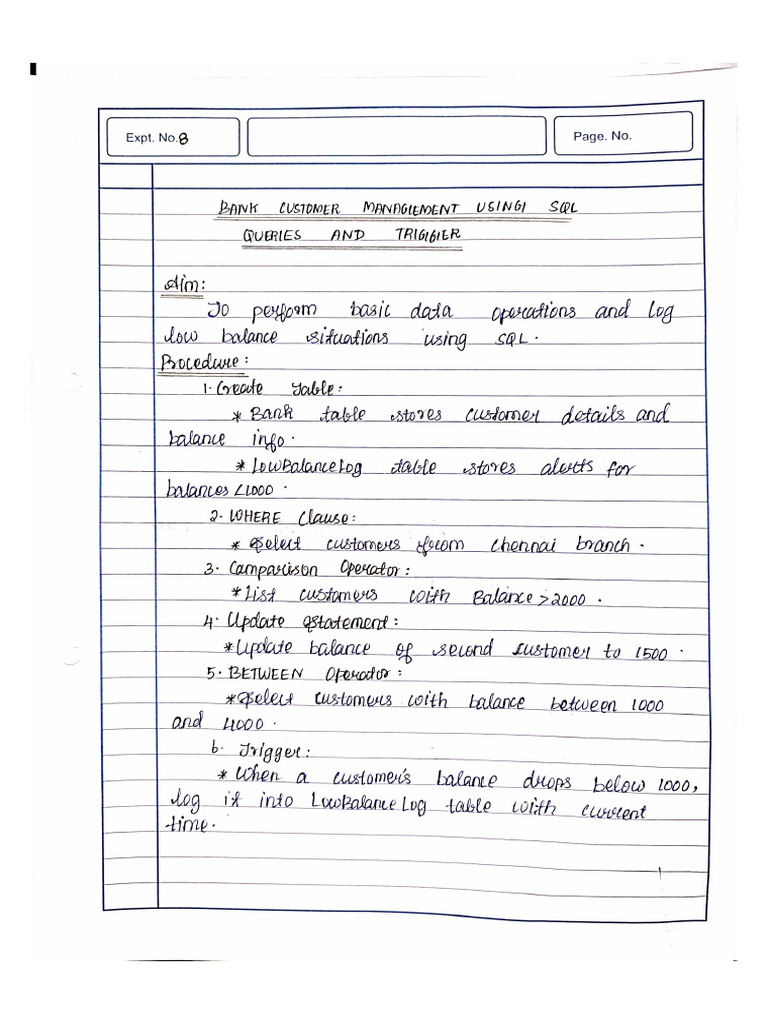 Expt. No. 8
Page. No.
BANK CUSTOMER MANAGEMENT USING SQL
QUERIES AND TRIGGER
Aim:
To perform basic data operations and log
low balance situations using SQL.
Procedure:
1. Create Table:
* Bank table stores customer details and
balance info.
* LowBalanceLog table stores alerts for
balances <1000.
2. WHERE Clause:
* Select customers from Chennai branch.
3. Comparison Operator:
* List customers with Balance > 2000.
4. Update Statement:
* Update balance of second customer to 1500.
5. BETWEEN Operator:
* Select customers with balance between 1000
and 4000.
6. Trigger:
* When a customer's balance drops below 1000,
log it into LowBalanceLog table with current
time.